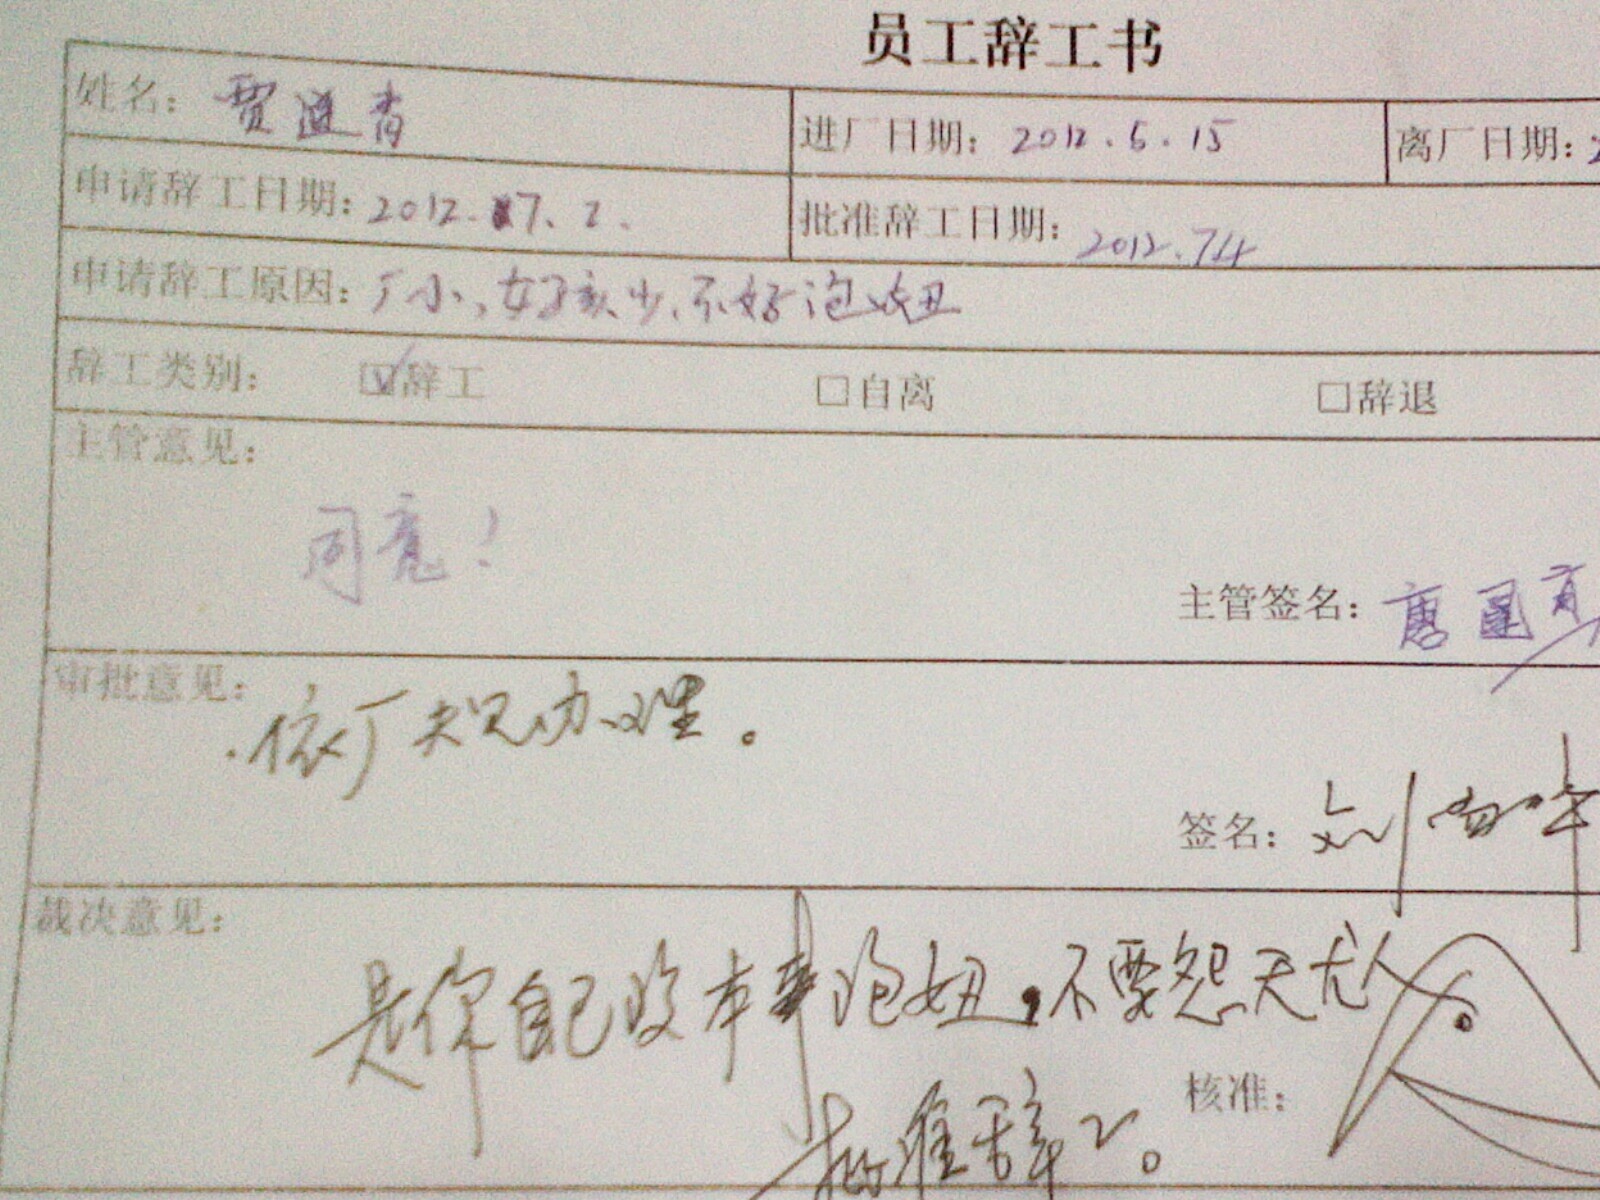 员工辞工书
姓名：贾 青 进厂日期：2012.5.15 离厂日期：
申请辞工日期：2012.7.2. 批准辞工日期：2012.7.4
申请辞工原因：厂小、女孩少、不好泡妞
辞工类别： ☑辞工 □自离 □辞退
主管意见：
同意！
主管签名：唐国
审批意见：
依厂规办理。
签名：刘
裁决意见：
是你自己没本事泡妞，不要怨天尤人。
核准：
批准辞工。